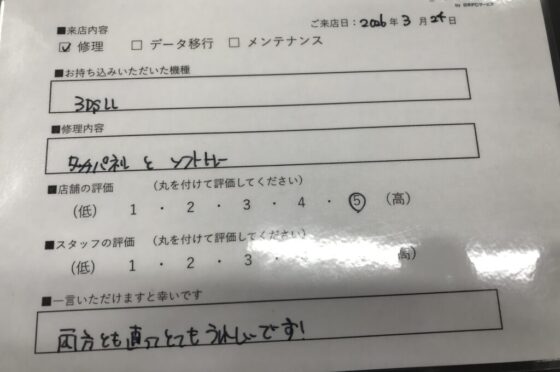 by 日本PCサービス
ご来店日：2026年3月24日
■来店内容
☑ 修理 □ データ移行 □ メンテナンス
■お持ち込みいただいた機種
3DSLL
■修理内容
タッチパネル と ソフトトレー
■店舗の評価 （丸を付けて評価してください）
（低） 1 ・ 2 ・ 3 ・ 4 ・ ⑤ （高）
■スタッフの評価 （丸を付けて評価してください）
（低） 1 ・ 2 ・ 3 高）
■一言いただけますと幸いです
両方とも直ってとてもうれしいです!